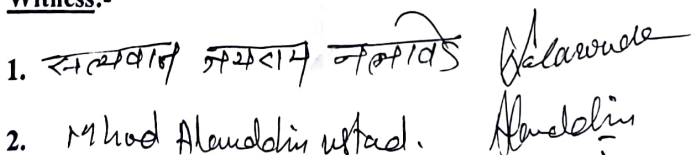 Witness:-
1. सत्यवान जयराम नलावडे
2. Mhod Alauddin ustad. Alauddin